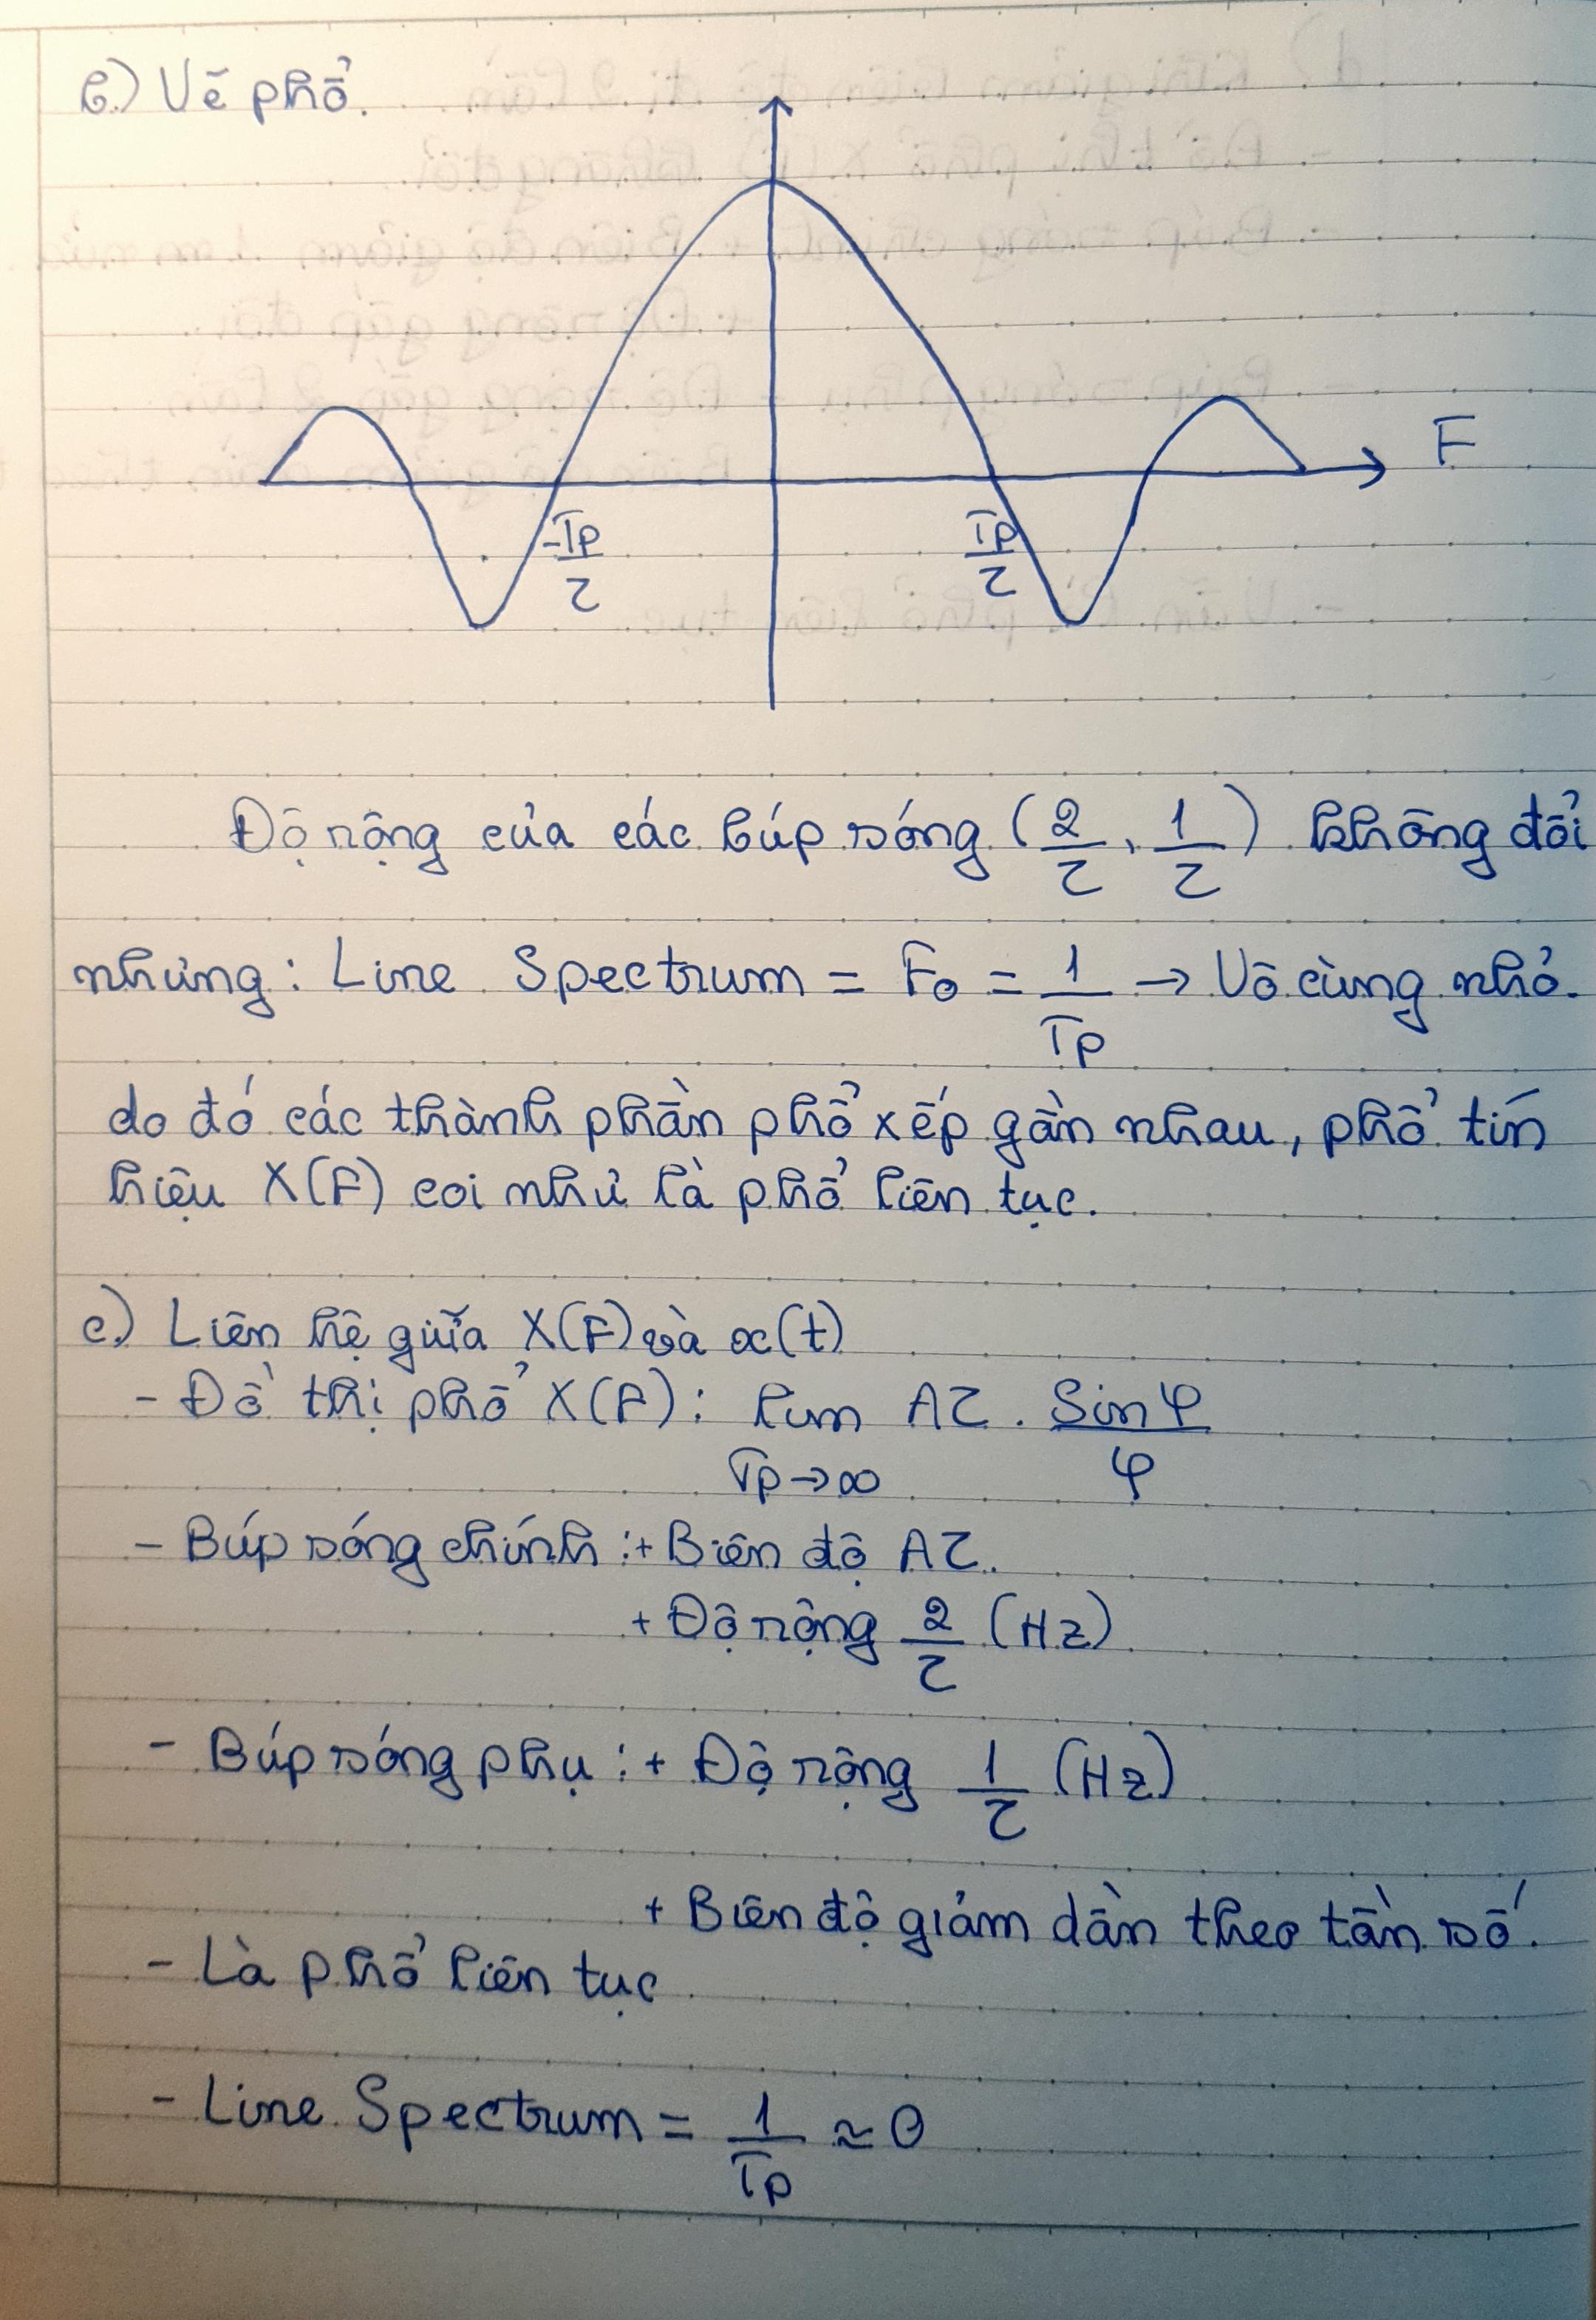 b.) Vẽ phổ.
F
-Tp/τ
Tp/τ
Độ rộng của các búp sóng (2/τ, 1/τ) không đổi
nhưng: Line Spectrum = F₀ = 1/Tp → Vô cùng nhỏ.
do đó các thành phần phổ xếp gần nhau, phổ tín
hiệu X(F) coi như là phổ liên tục.
c.) Liên hệ giữa X(F) và x(t)
- Đồ thị phổ X(F): lim Aτ . Sinφ/φ
Tp→∞
- Búp sóng chính :+ Biên độ Aτ.
+ Độ rộng 2/τ (Hz)
- Búp sóng phụ :+ Độ rộng 1/τ (Hz)
+ Biên độ giảm dần theo tần số.
- Là phổ liên tục
- Line Spectrum = 1/Tp ≈ 0